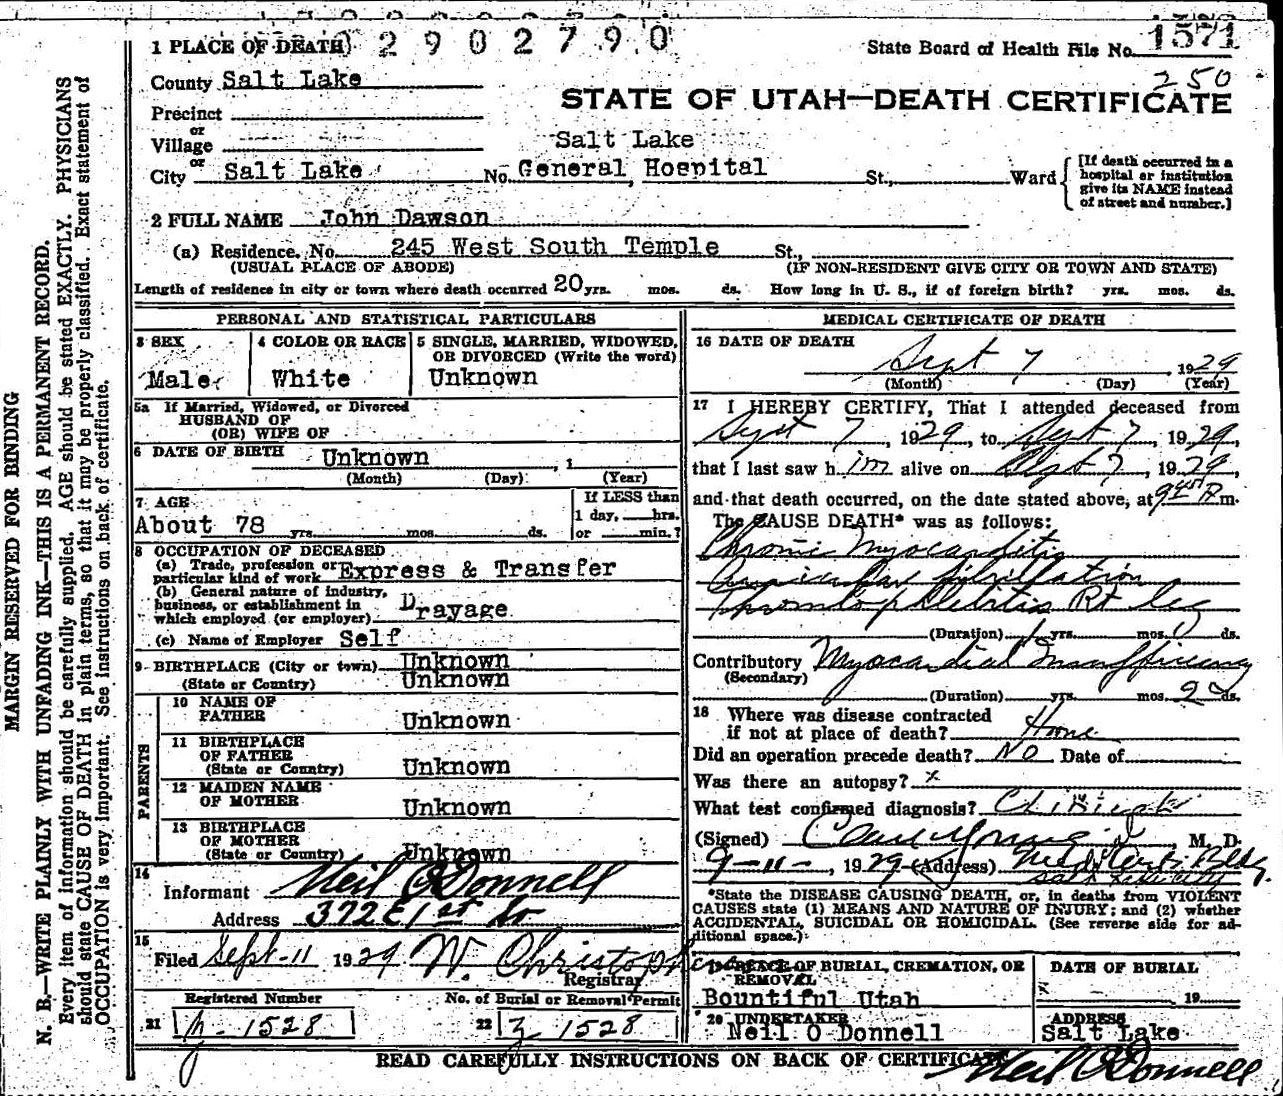 1 PLACE OF DEATH 2902790
State Board of Health File No. 1571
250
County Salt Lake
STATE OF UTAH—DEATH CERTIFICATE
Precinct
or
Village
Salt Lake
or
City Salt Lake No. General Hospital St., Ward
[If death occurred in a hospital or institution give its NAME instead of street and number.]
2 FULL NAME John Dawson
(a) Residence. No. 245 West South Temple St.,
(USUAL PLACE OF ABODE) (IF NON-RESIDENT GIVE CITY OR TOWN AND STATE)
Length of residence in city or town where death occurred 20 yrs. mos. ds. How long in U. S., if of foreign birth? yrs. mos. ds.
PERSONAL AND STATISTICAL PARTICULARS
3 SEX
Male
4 COLOR OR RACE
White
5 SINGLE, MARRIED, WIDOWED, OR DIVORCED (Write the word)
Unknown
5a If Married, Widowed, or Divorced
HUSBAND OF
(OR) WIFE OF
6 DATE OF BIRTH Unknown , 1
(Month) (Day) (Year)
7 AGE
About 78 yrs. mos. ds.
If LESS than
1 day, hrs.
or min.?
8 OCCUPATION OF DECEASED
(a) Trade, profession or
particular kind of work Express & Transfer
(b) General nature of industry,
business, or establishment in
which employed (or employer) Drayage
(c) Name of Employer Self
9 BIRTHPLACE (City or town) Unknown
(State or Country) Unknown
PARENTS
10 NAME OF
FATHER Unknown
11 BIRTHPLACE
OF FATHER
(State or Country) Unknown
12 MAIDEN NAME
OF MOTHER Unknown
13 BIRTHPLACE
OF MOTHER
(State or Country) Unknown
14
Informant Neil O'Donnell
Address 372 E 1st So
15
Filed Sept-11 1929 W. Christopherson
Registrar
Registered Number
21 1528
No. of Burial or Removal Permit
22 1528
MEDICAL CERTIFICATE OF DEATH
16 DATE OF DEATH
Sept 7, 1929
(Month) (Day) (Year)
17 I HEREBY CERTIFY, That I attended deceased from
Sept 7, 1929, to Sept 7, 1929,
that I last saw him alive on Sept 7, 1929,
and that death occurred, on the date stated above, at m.
The CAUSE DEATH* was as follows:
Chronic Myocarditis
Auricular fibrillation
Thrombophlebitis Rt leg
(Duration) yrs. mos. ds.
Contributory Myocardial Insufficiency
(Secondary)
(Duration) yrs. mos. ds.
18 Where was disease contracted
if not at place of death? Home
Did an operation precede death? No Date of
Was there an autopsy? x
What test confirmed diagnosis? Clinical
(Signed) M. D.
9-11-, 1929 (Address) Bldg.
Salt Lake City
*State the DISEASE CAUSING DEATH, or, in deaths from VIOLENT
CAUSES state (1) MEANS AND NATURE OF INJURY; and (2) whether
ACCIDENTAL, SUICIDAL OR HOMICIDAL. (See reverse side for ad-
ditional space.)
19 PLACE OF BURIAL, CREMATION, OR
REMOVAL
Bountiful Utah
DATE OF BURIAL
x 19
20 UNDERTAKER
Neil O Donnell
ADDRESS
Salt Lake
READ CAREFULLY INSTRUCTIONS ON BACK OF CERTIFICATE
Neil O'Donnell
MARGIN RESERVED FOR BINDING
N. B.—WRITE PLAINLY WITH UNFADING INK—THIS IS A PERMANENT RECORD.
Every item of information should be carefully supplied. AGE should be stated EXACTLY. PHYSICIANS
should state CAUSE OF DEATH in plain terms, so that it may be properly classified. Exact statement of
OCCUPATION is very important. See instructions on back of certificate.